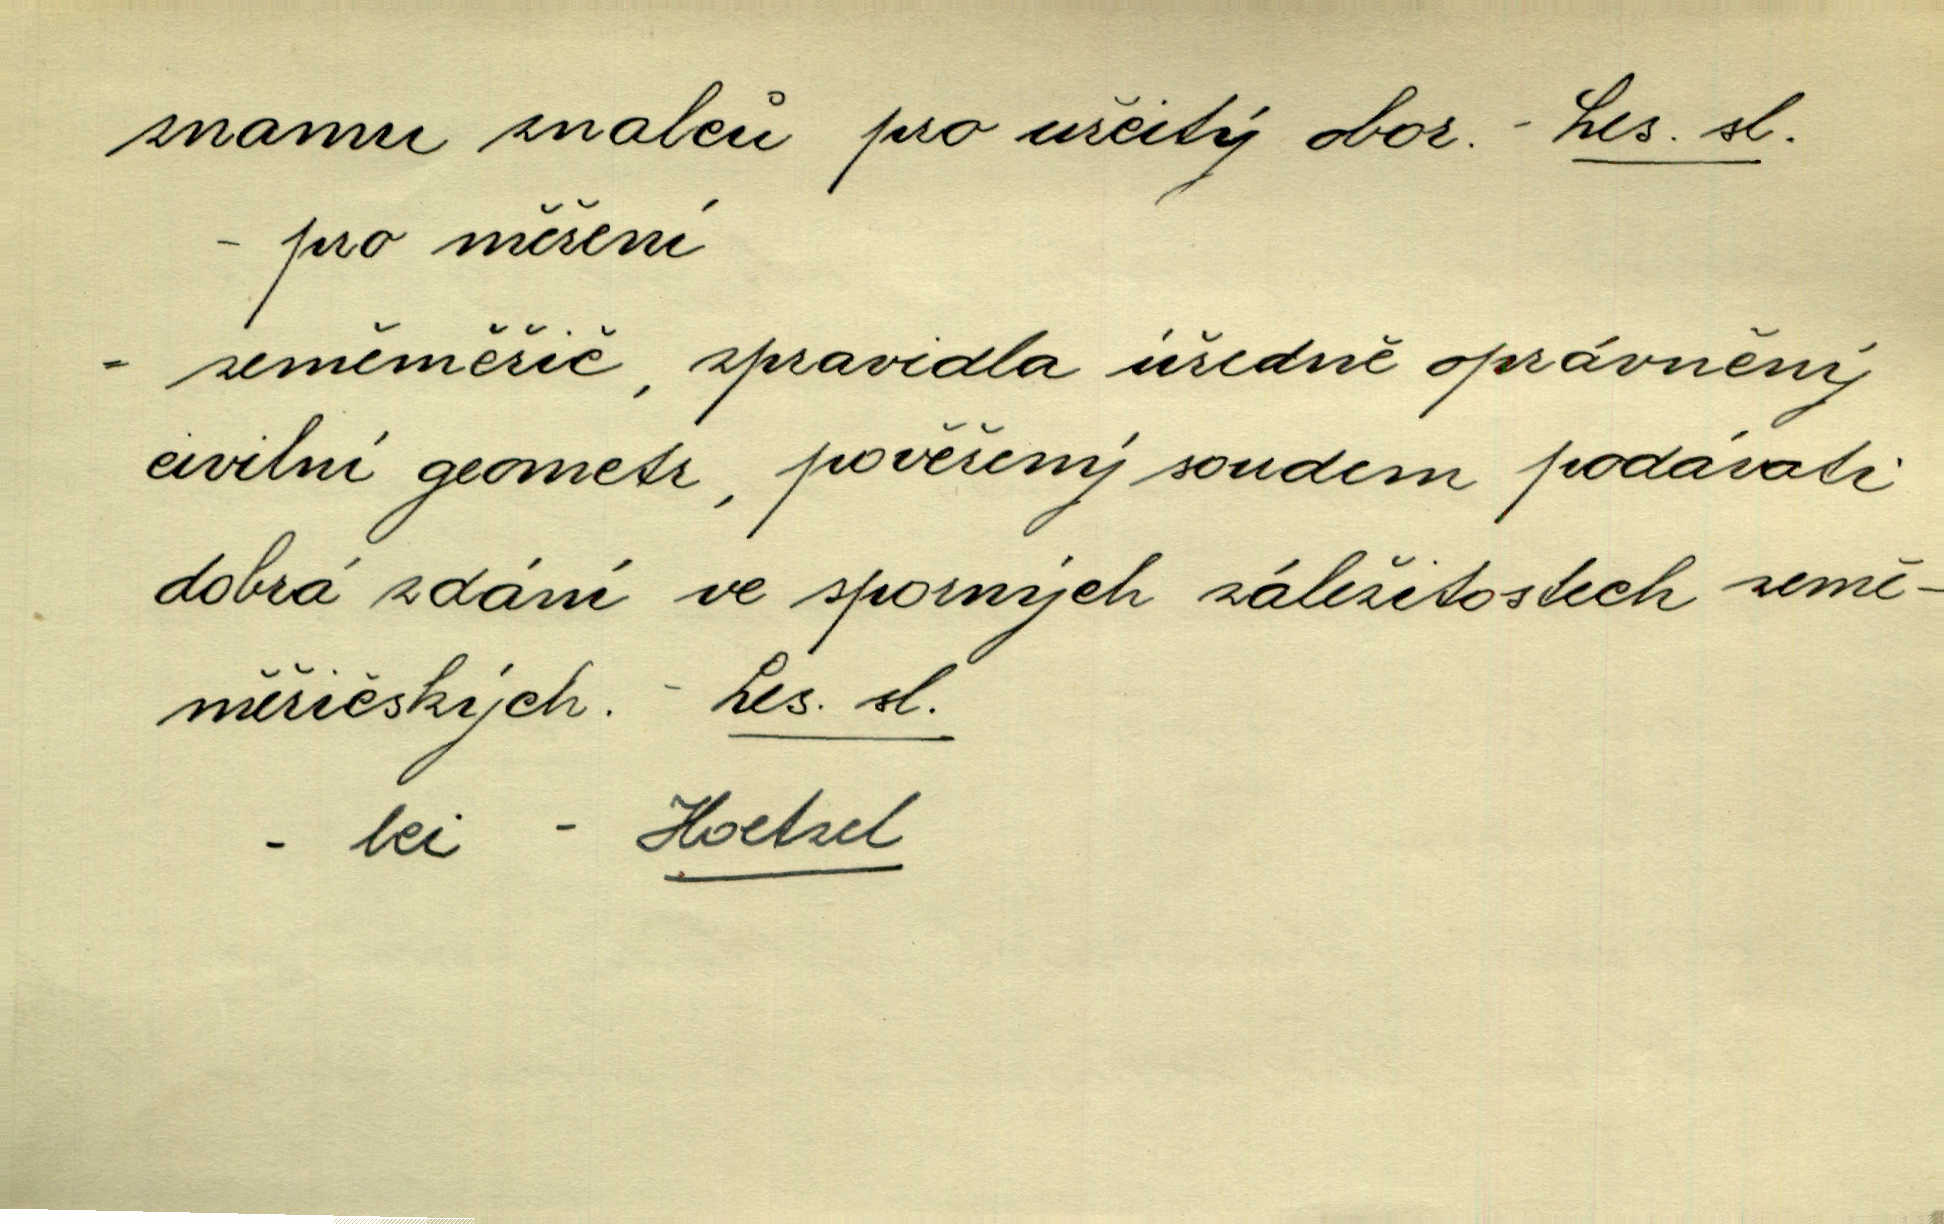 znamu znalců pro určitý obor. - Les. sl.
- pro měření
- zeměměřič, zpravidla úředně oprávněný
civilní geometr, pověřený soudem podávati
dobrá zdání ve sporných záležitostech země-
měřičských. - Les. sl.
- lci - Hoetzel